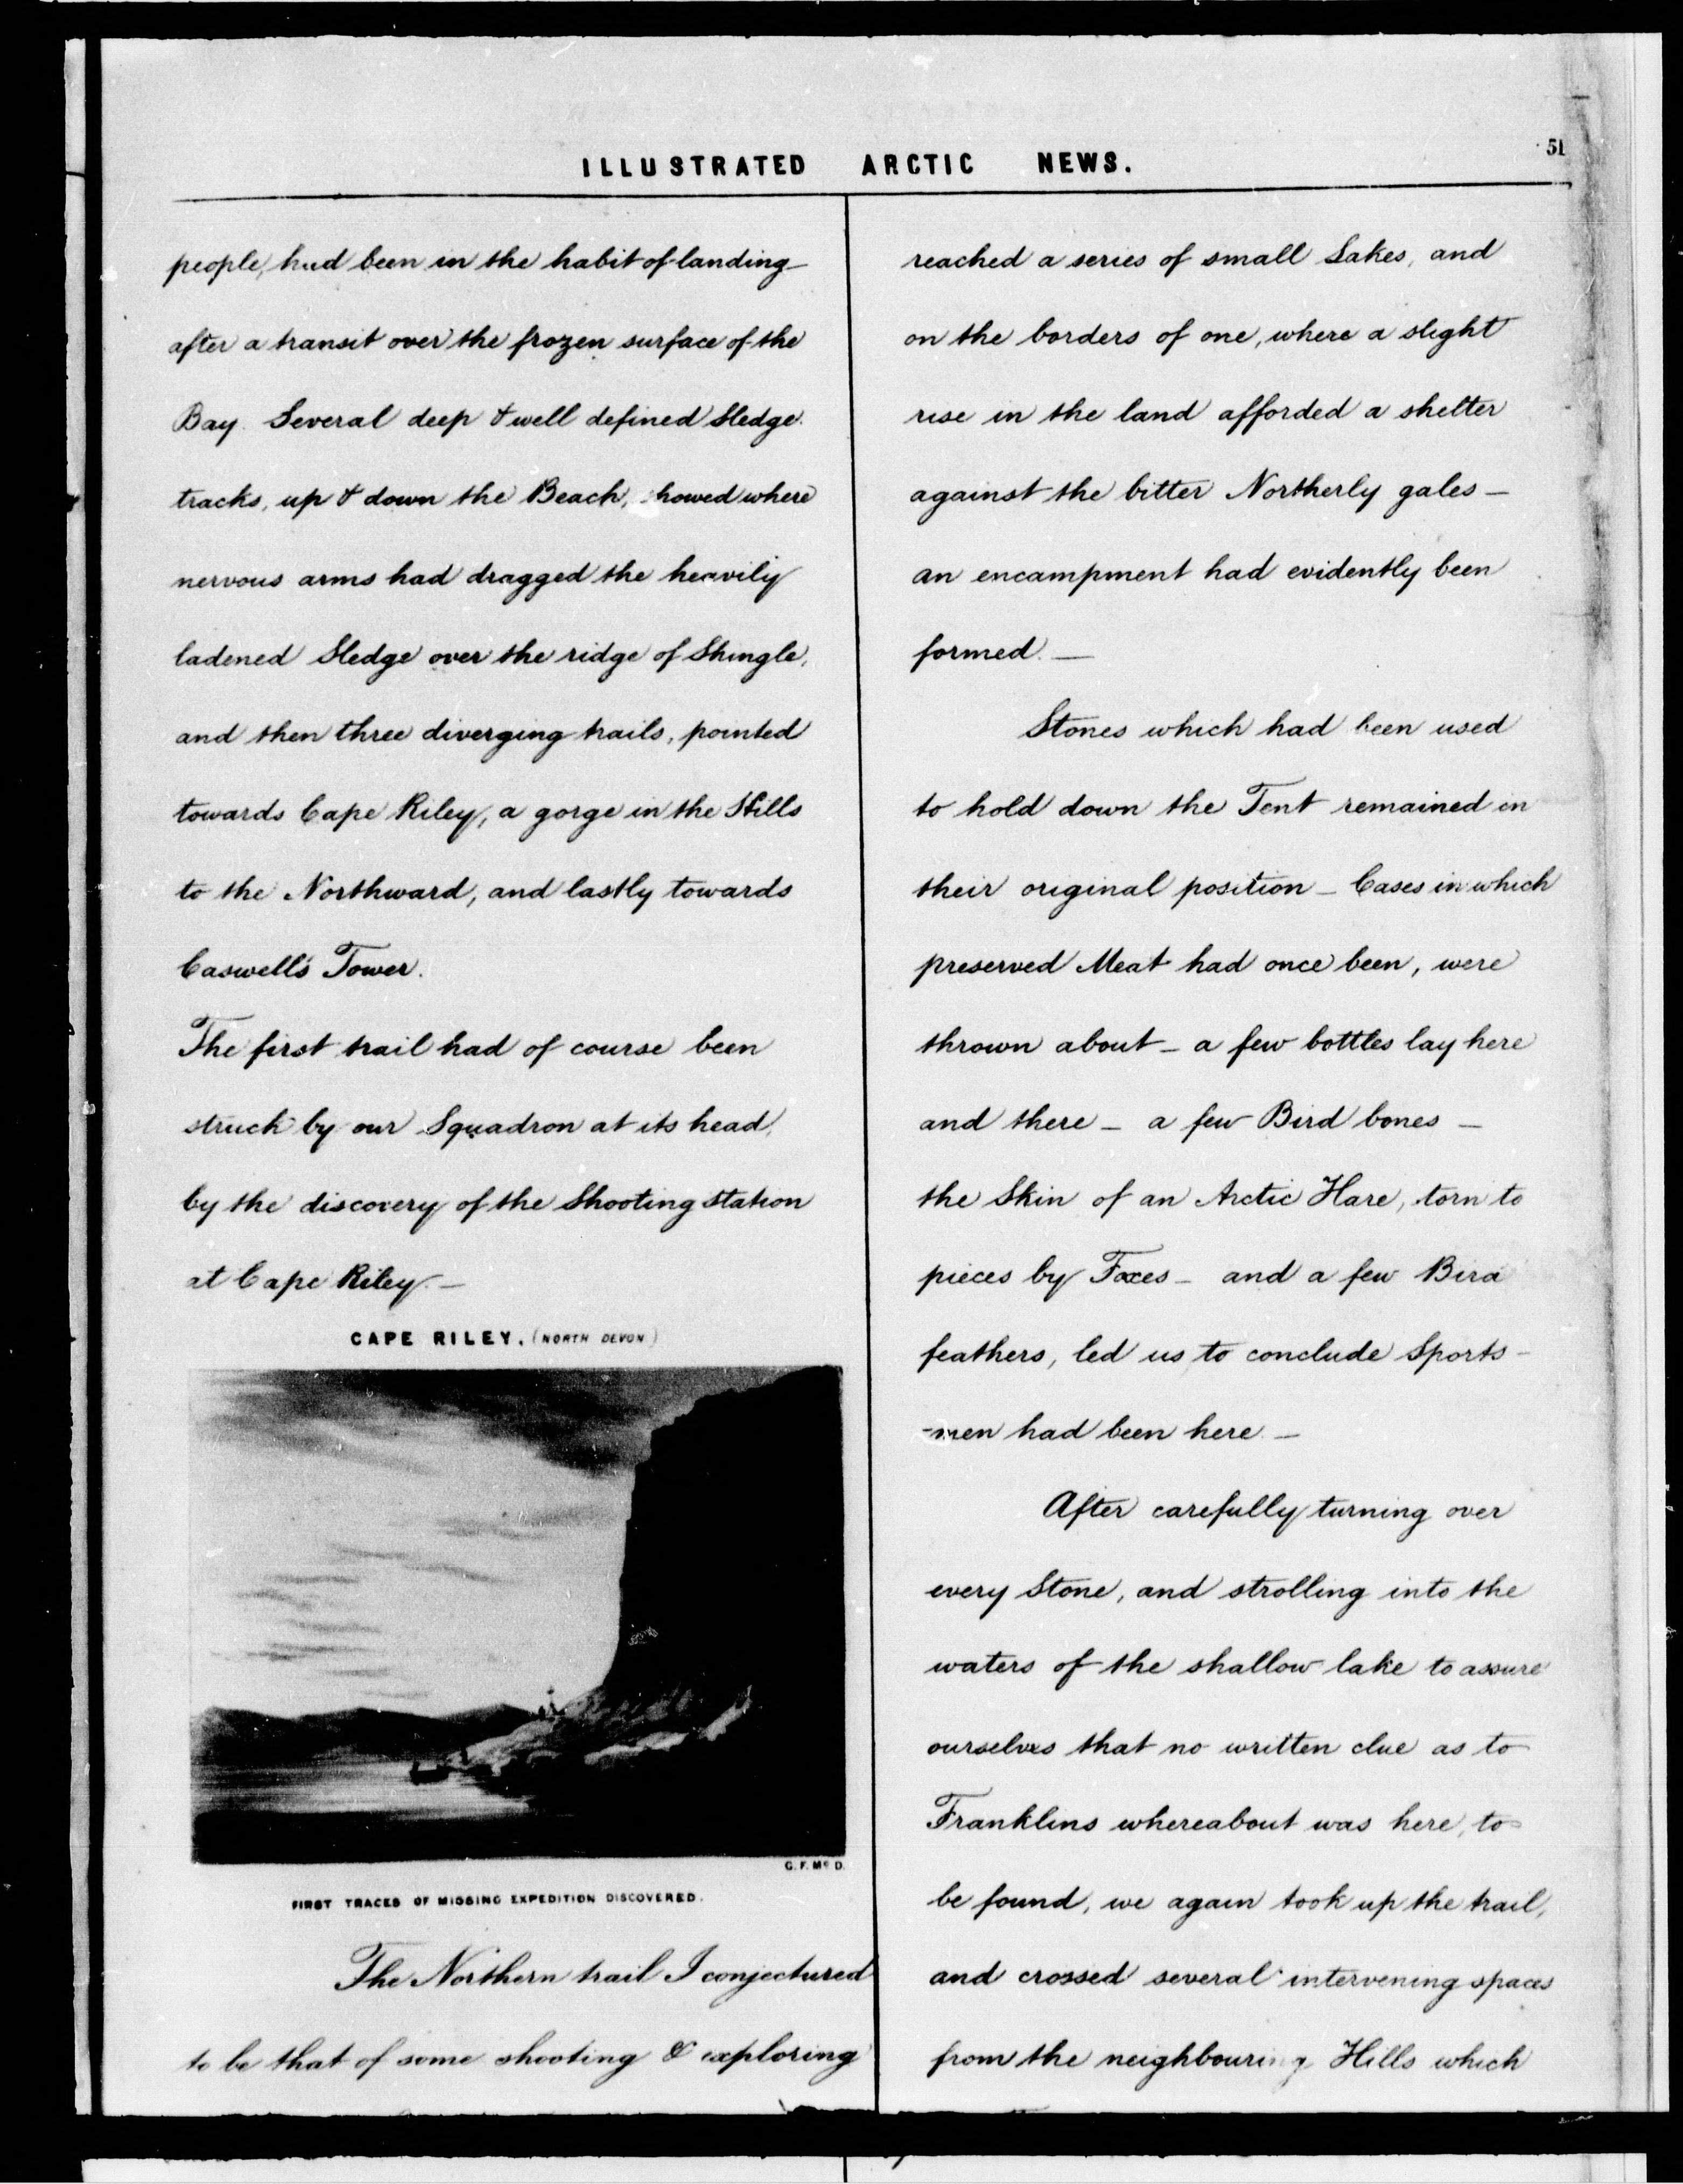 51
ILLUSTRATED ARCTIC NEWS.
people, had been in the habit of landing
after a transit over the frozen surface of the
Bay. Several deep & well defined Sledge
tracks, up & down the Beach, showed where
nervous arms had dragged the heavily
ladened Sledge over the ridge of Shingle,
and then three diverging trails, pointed
towards Cape Riley, a gorge in the Hills
to the Northward, and lastly towards
Caswell's Tower.
The first trail had of course been
struck by our Squadron at its head,
by the discovery of the Shooting station
at Cape Riley. —
CAPE RILEY. (NORTH DEVON)
G. F. McD.
FIRST TRACES OF MISSING EXPEDITION DISCOVERED.
The Northern trail I conjectured
to be that of some shooting & exploring
reached a series of small Lakes, and
on the borders of one, where a slight
rise in the land afforded a shelter
against the bitter Northerly gales —
an encampment had evidently been
formed. —
Stones which had been used
to hold down the Tent remained in
their original position — Cases in which
preserved Meat had once been, were
thrown about — a few bottles lay here
and there — a few Bird bones —
the Skin of an Arctic Hare, torn to
pieces by Foxes — and a few Bird
feathers, led us to conclude Sports-
-men had been here. —
After carefully turning over
every Stone, and strolling into the
waters of the shallow lake to assure
ourselves that no written clue as to
Franklins whereabout was here, to
be found, we again took up the trail,
and crossed several intervening spaces
from the neighbouring Hills which